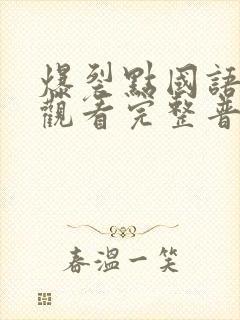 爆裂點國語
觀看完整普
春溫一笑